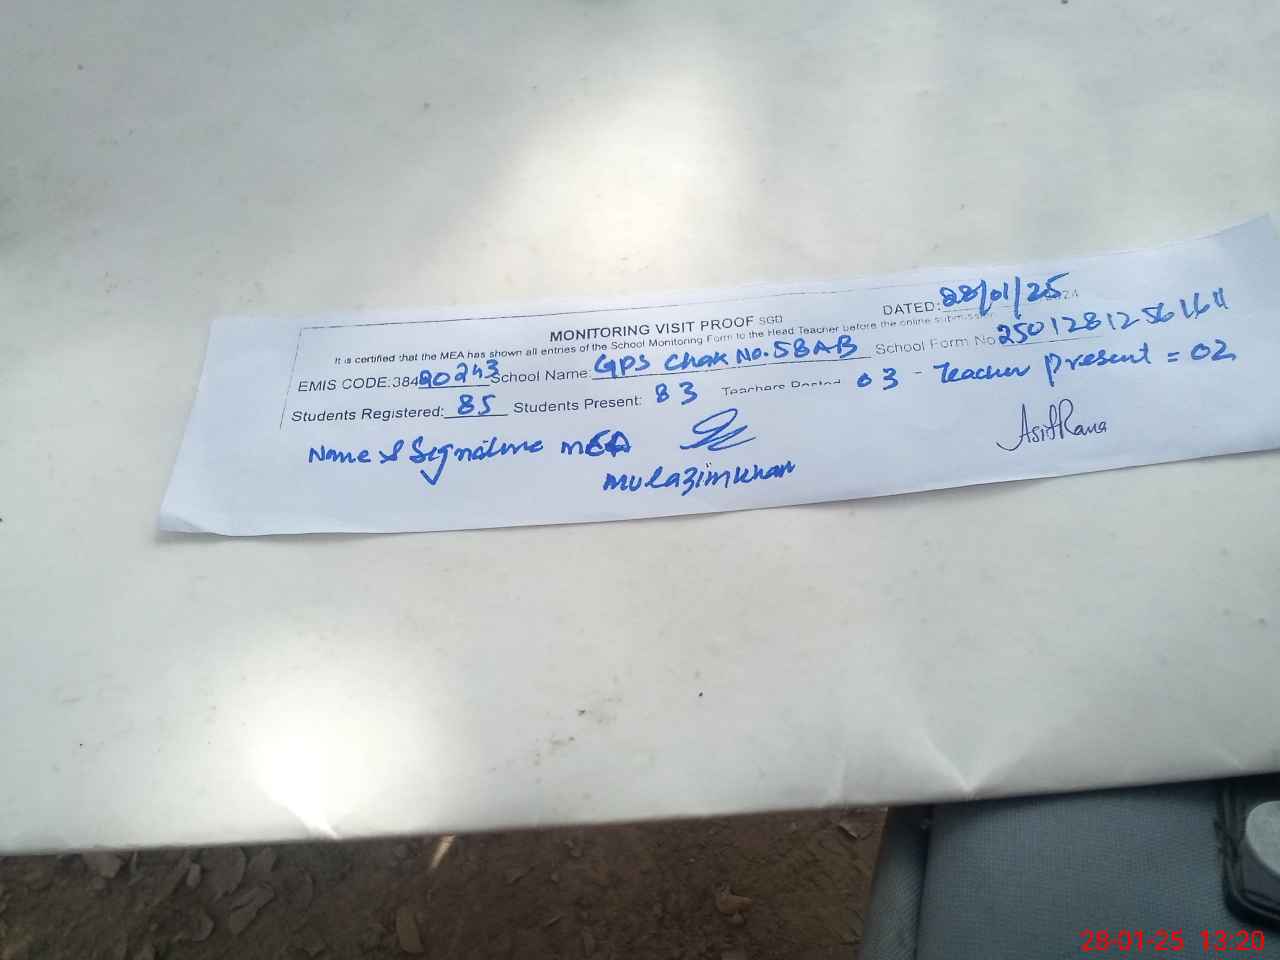 MONITORING VISIT PROOF SGD DATED: 28/01/25
It is certified that the MEA has shown all entries of the School Monitoring Form to the Head Teacher before the online submission
EMIS CODE:38420243 School Name: GPS Chak No.58AB School Form No 25012812561611
Students Registered: 85 Students Present: 83 Teachers Posted 03 - Teacher present = 02
Name & Signature MEA
Mulazimkhan
AsifRana
28-01-25 13:20